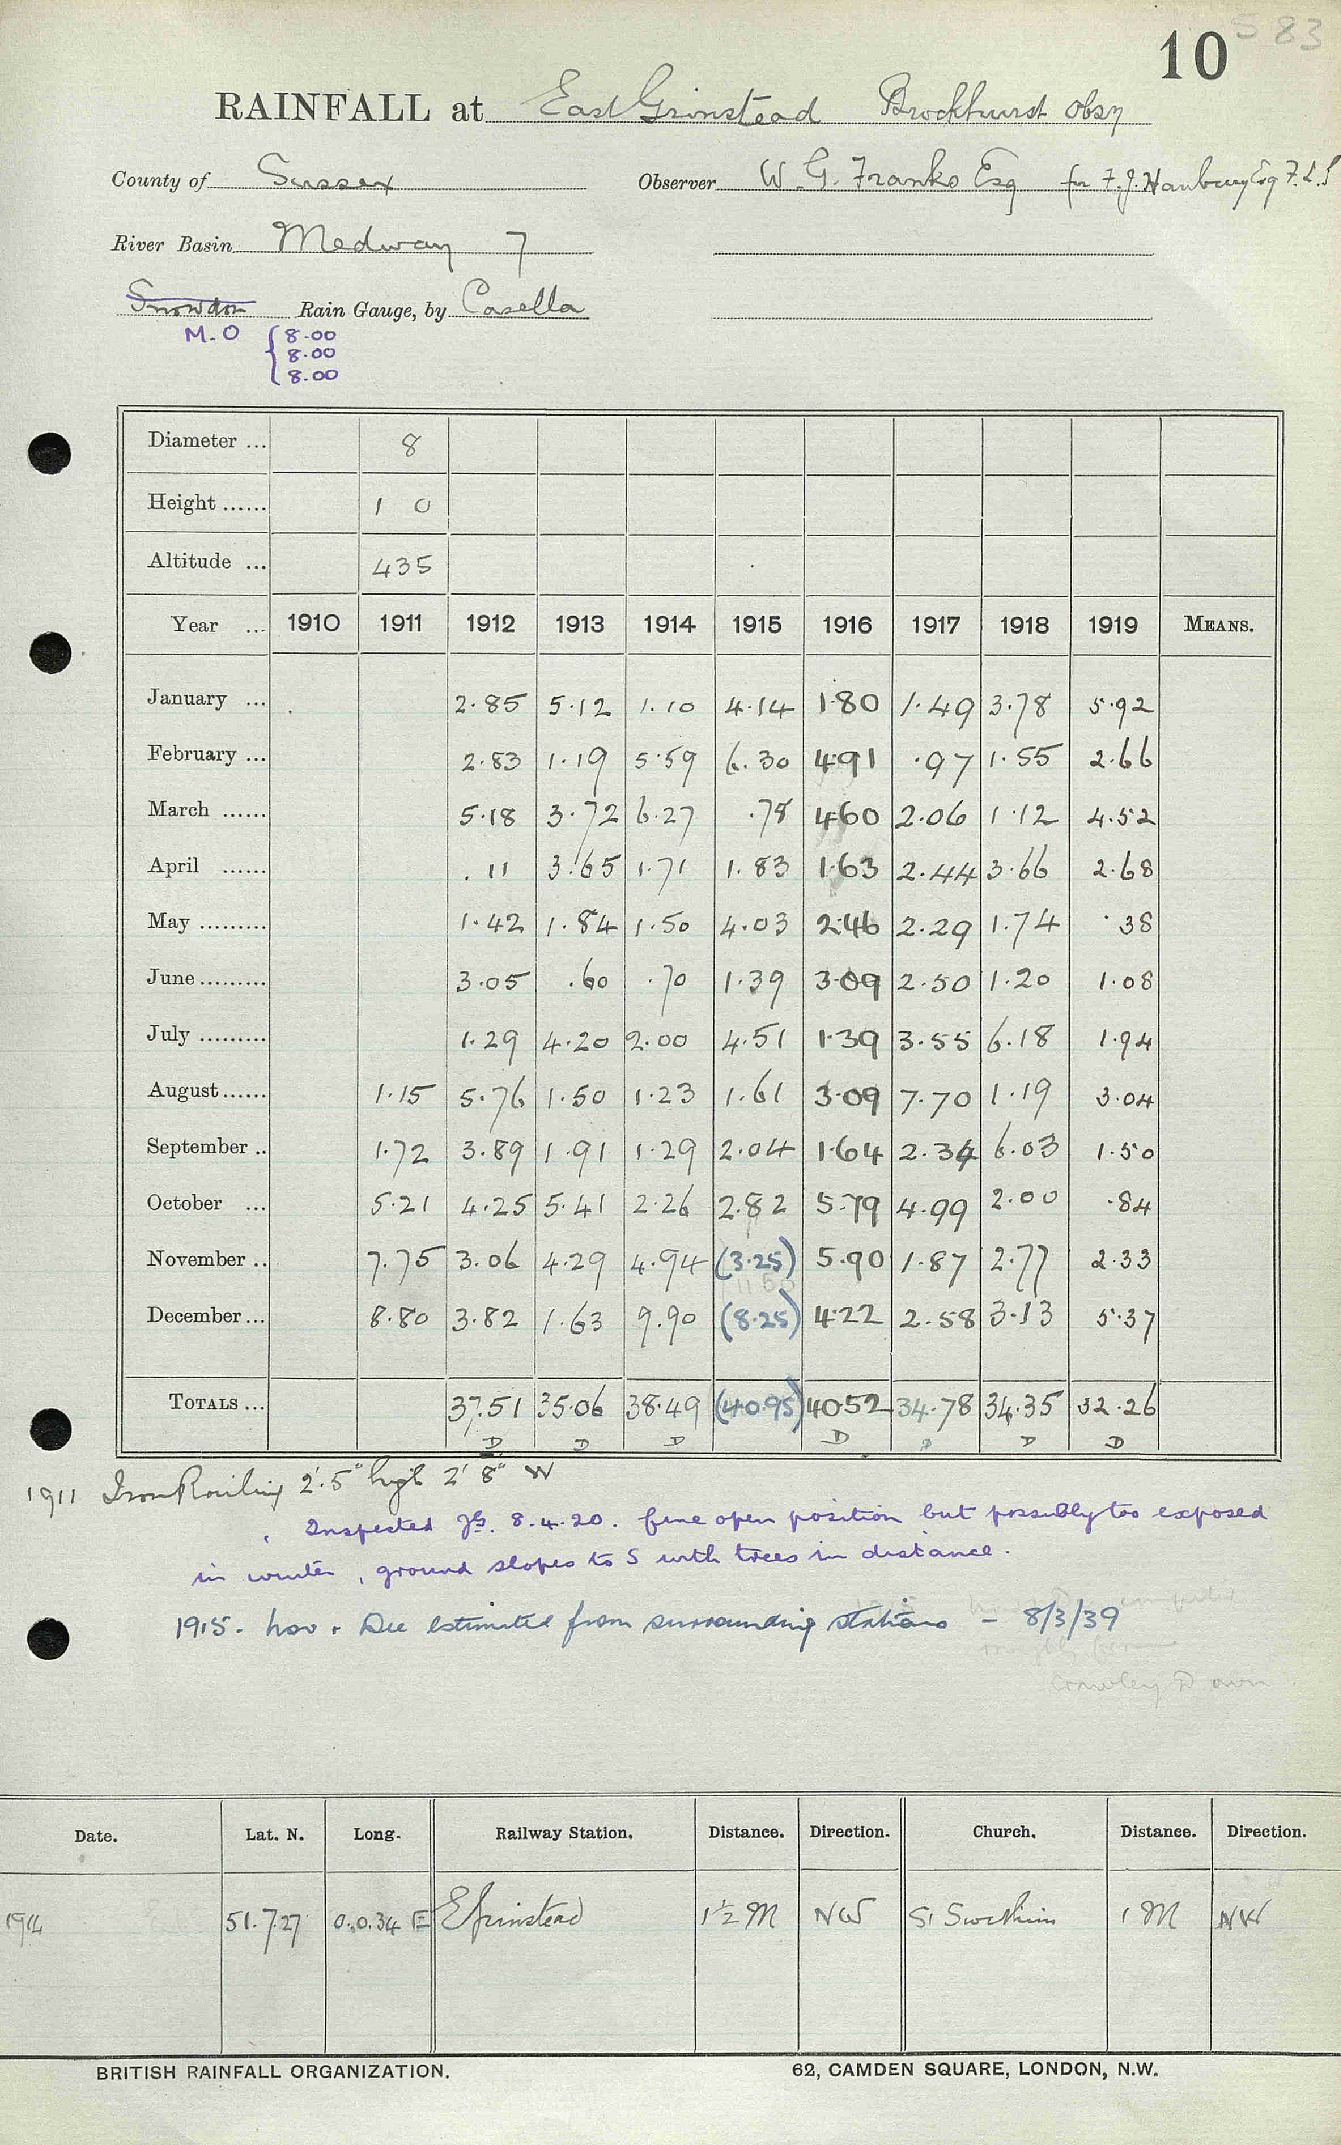 10 583
RAINFALL at East Grinstead Brockhurst Obsy
County of Sussex Observer W. G. Franks Esq for F. J. Hanbury Esq F.L.S
River Basin Medway 7
Snowdon Rain Gauge, by Casella
M.O { 8.00
8.00
8.00
Diameter ... 8
Height ...... 1 0
Altitude ... 435
Year ... 1910 1911 1912 1913 1914 1915 1916 1917 1918 1919 MEANS.
January ... 2.85 5.12 1.10 4.14 1.80 1.49 3.78 5.92
February ... 2.83 1.19 5.59 6.30 4.91 .97 1.55 2.66
March ...... 5.18 3.72 6.27 .78 4.60 2.06 1.12 4.52
April ...... .11 3.65 1.71 1.83 1.63 2.44 3.66 2.68
May ......... 1.42 1.84 1.50 4.03 2.46 2.29 1.74 .38
June ......... 3.05 .60 .70 1.39 3.09 2.50 1.20 1.08
July ......... 1.29 4.20 2.00 4.51 1.39 3.55 6.18 1.94
August...... 1.15 5.76 1.50 1.23 1.61 3.09 7.70 1.19 3.04
September .. 1.72 3.89 1.91 1.29 2.04 1.64 2.34 6.03 1.50
October ... 5.21 4.25 5.41 2.26 2.82 5.79 4.99 2.00 .84
November .. 7.75 3.06 4.29 4.94 (3.25) 5.90 1.87 2.77 2.33
11 50
December ... 8.80 3.82 1.63 9.90 (8.25) 4.22 2.58 3.13 5.37
TOTALS ... 37.51 35.06 38.49 (40.95) 40.52 34.78 34.35 32.26
D D D D D D D
1911 Iron Railing 2'.5" high 2' 8" W
Inspected 8.4.20. fine open position but possibly too exposed
in winter, ground slopes to S with trees in distance.
1915. Nov. Dec estimated from surrounding stations - 8/3/39
roughly from
Crawley Down
Date. Lat. N. Long. Railway Station. Distance. Direction. Church. Distance. Direction.
1914 51.7.27 0.0.34 E E Grinstead 1½ M NW St Swithin 1 M NW
BRITISH RAINFALL ORGANIZATION. 62, CAMDEN SQUARE, LONDON, N.W.